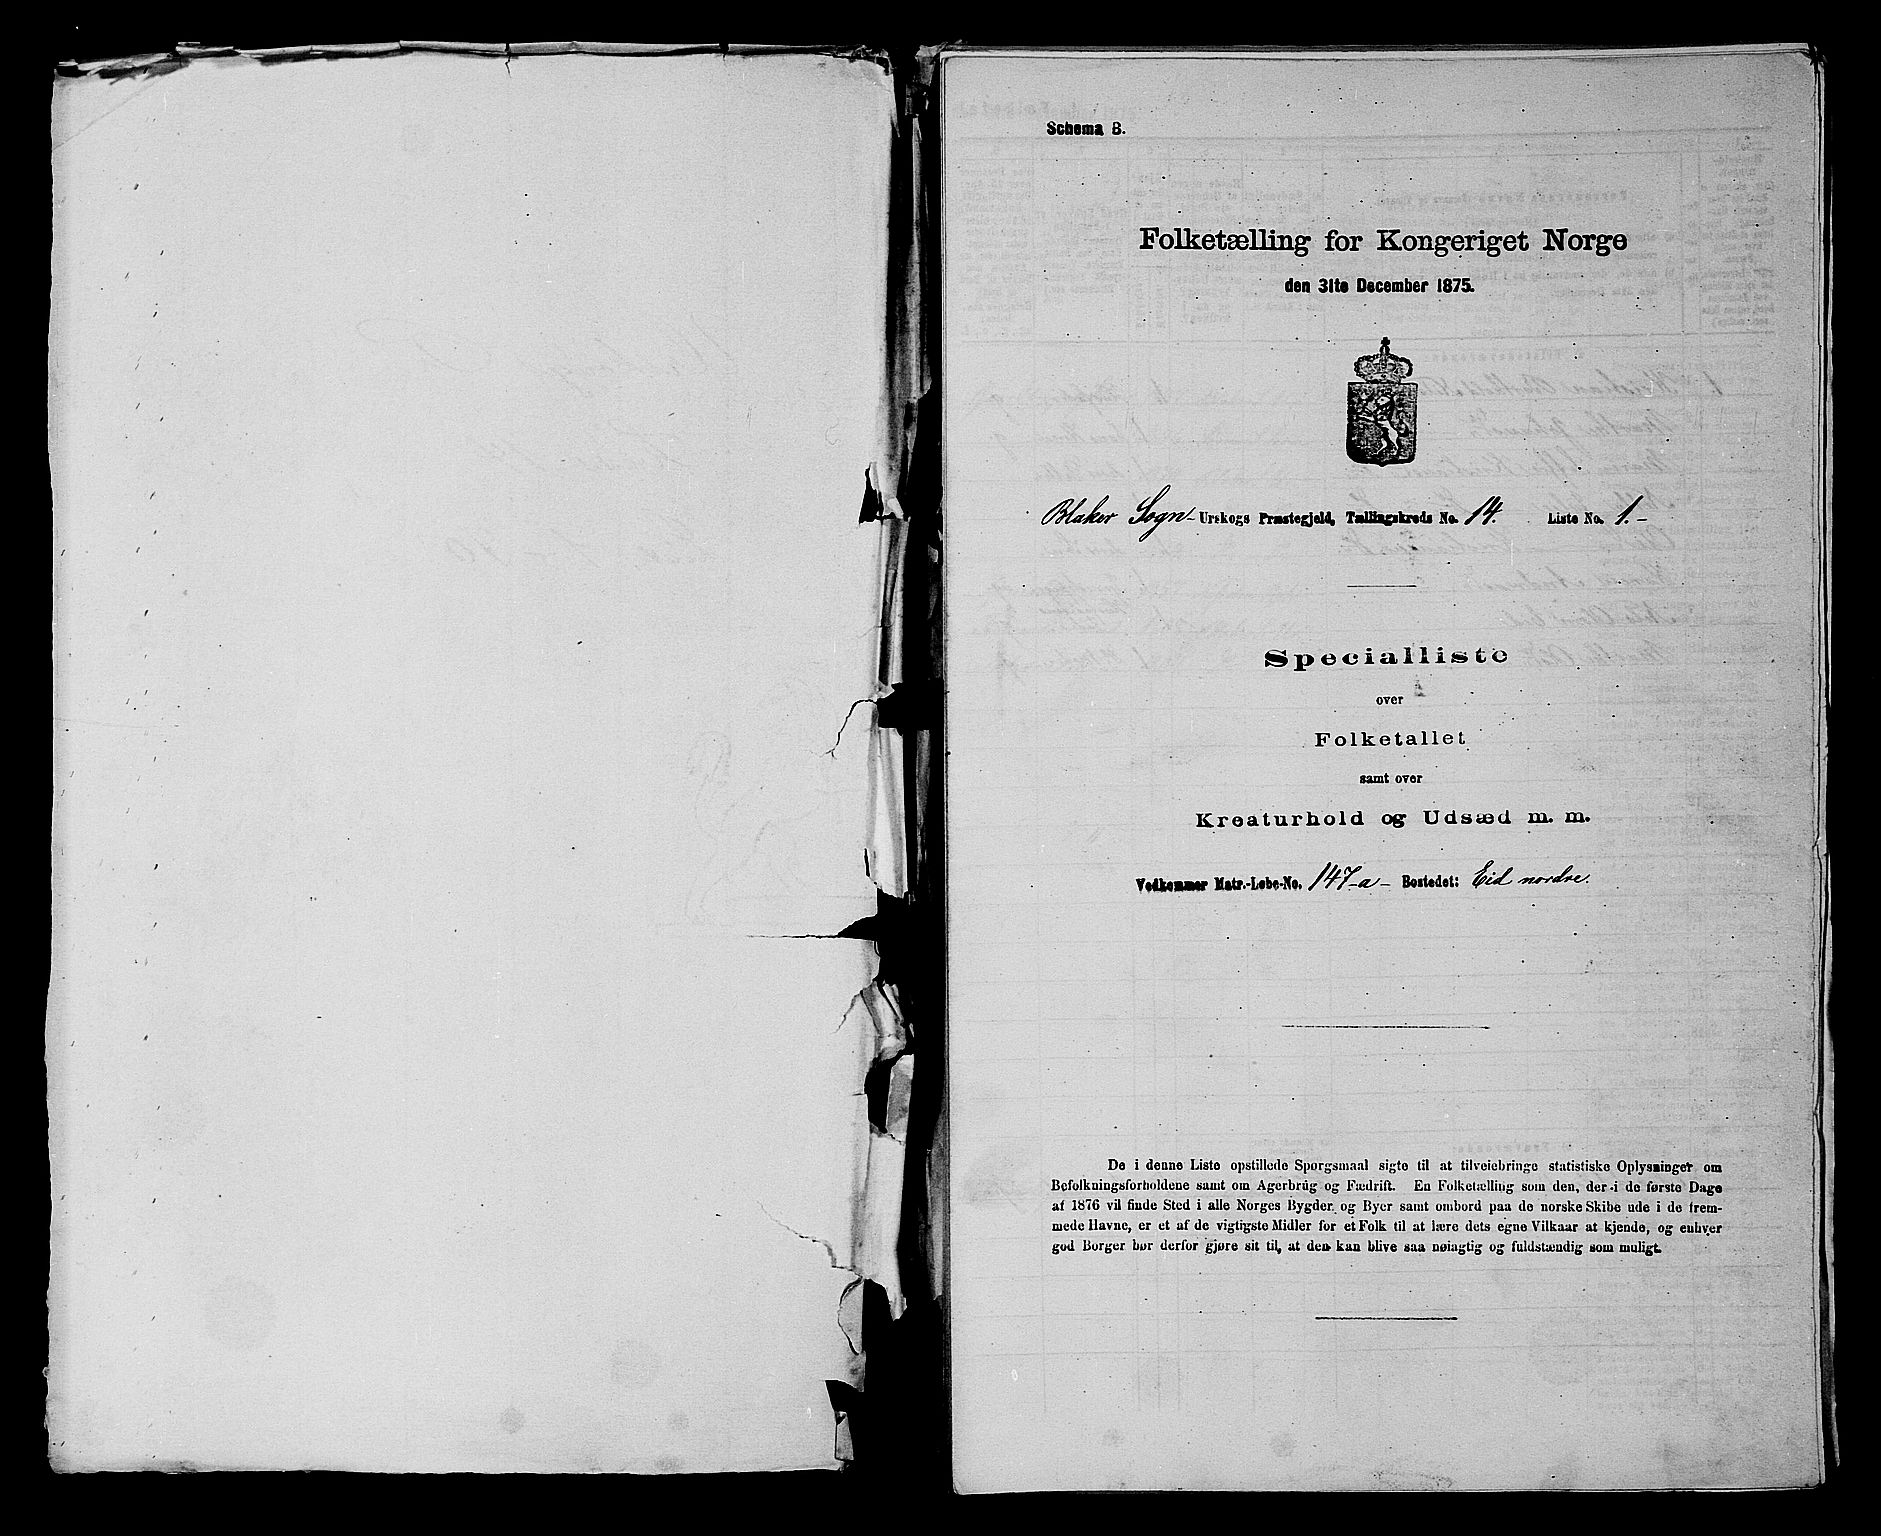 Schema B.
Folketælling for Kongeriget Norge
den 31te December 1875.
Blaker Sogn - Urskogs Præstegjeld, Tællingskreds No. 14. Liste No. 1. -
Specialliste
over
Folketallet
samt over
Kreaturhold og Udsæd m. m.
Vedkommer Matr.-Løbe-No. 147-a- Bostedet: Eid nordre.
De i denne Liste opstillede Spørgsmaal sigte til at tilveiebringe statistiske Oplysninger om
Befolkningsforholdene samt om Agerbrug og Fædrift. En Folketælling som den, der i de første Dage
af 1876 vil finde Sted i alle Norges Bygder og Byer samt ombord paa de norske Skibe ude i de frem-
mede Havne, er et af de vigtigste Midler for et Folk til at lære dets egne Vilkaar at kjende, og enhver
god Borger bør derfor gjøre sit til, at den kan blive saa nøiagtig og fuldstændig som muligt.